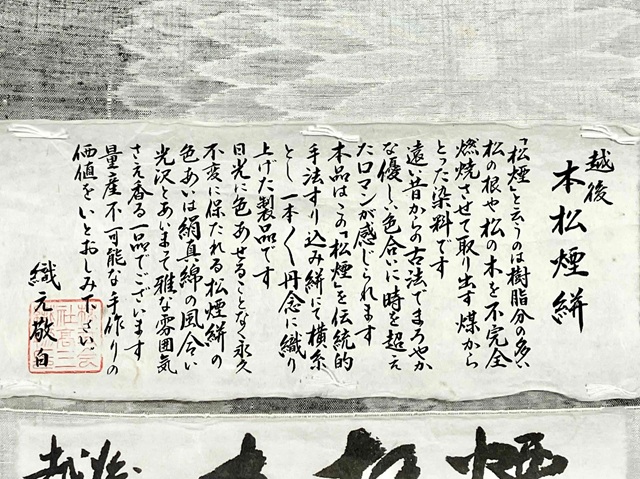 越後
本松煙絣
「松煙」と云うのは樹脂分の多い
松の根や松の木を不完全
燃焼させて取り出す煤から
とった染料です
遠い昔からの古法でまろやか
な優しい色合いに時を超え
たロマンが感じられます
本品はこの「松煙」を伝統的
手法すり込み絣にて横糸
とし一本〱丹念に織り
上げた製品です
日光に色あせることなく永久
不変に保たれる松煙絣の
色あいは絹真綿の風合い
光沢とあいまって雅な雰囲気
さえ香る一品でございます
量産不可能な手作りの
価値をいとおしみ下さい
織元敬白
越後
本松煙